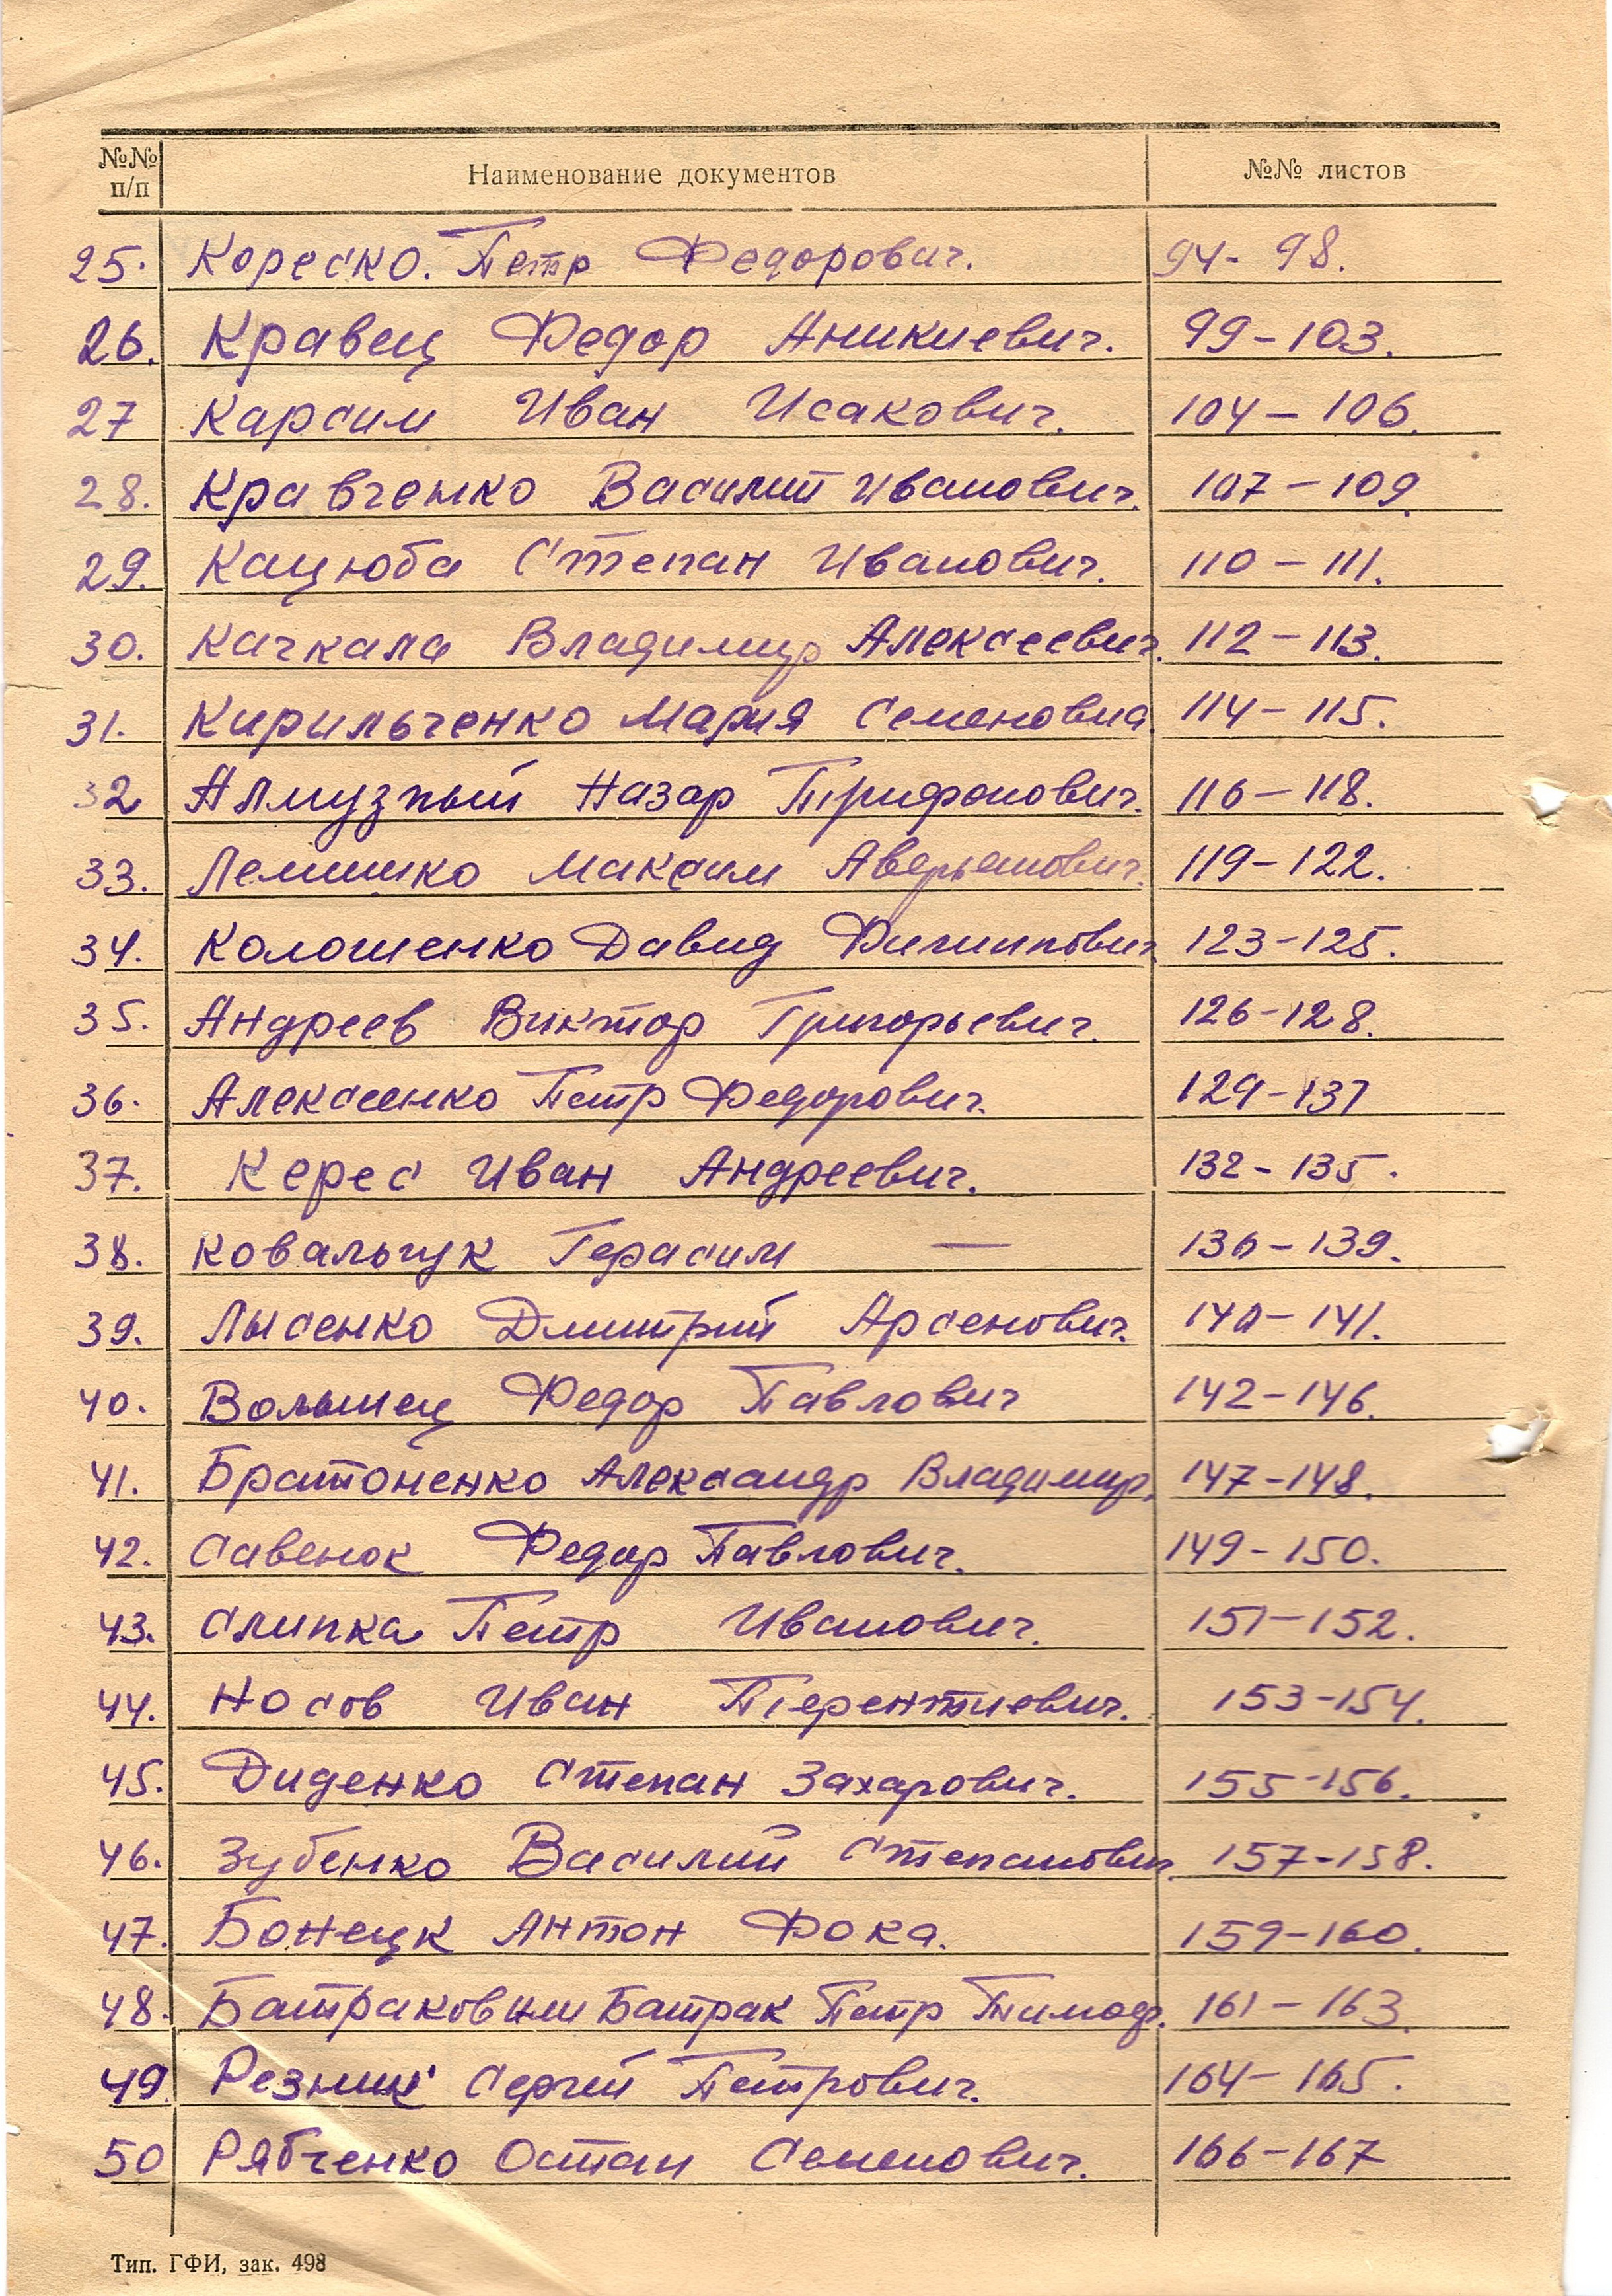 №№ п/п Наименование документов №№ листов
25. Кореско. Петр Федорович. 94- 98.
26. Кравец Федор Аникиевич. 99-103.
27 Карсим Иван Исакович. 104-106.
28. Кравченко Василий Иванович. 107-109.
29. Кацюба Степан Иванович. 110-111.
30. Качкала Владимир Алексеевич. 112-113.
31. Кирильченко Мария Семеновна. 114-115.
32 Алмузный Назар Трифонович. 116-118.
33. Лемишко Максим Аверьянович. 119-122.
34. Колошенко Давид Филиппович. 123-125.
35. Андреев Виктор Григорьевич. 126-128.
36. Алексеенко Петр Федорович. 129-131
37. Керес Иван Андреевич. 132-135.
38. Ковальчук Герасим — 136-139.
39. Лысенко Дмитрий Арсенович. 140-141.
40. Волынец Федор Павлович 142-146.
41. Братоненко Александр Владимир. 147-148.
42. Савенок Федор Павлович. 149-150.
43. Слипка Петр Иванович. 151-152.
44. Носов Иван Терентиевич. 153-154.
45. Диденко Степан Захарович. 155-156.
46. Зубенко Василий Степанович. 157-158.
47. Бонецк Антон Фока. 159-160.
48. Батраков или Батрак Петр Тимоф. 161-163.
49. Резник Сергей Петрович. 164-165.
50 Рябченко Остап Семенович. 166-167
Тип. ГФИ, зак. 498